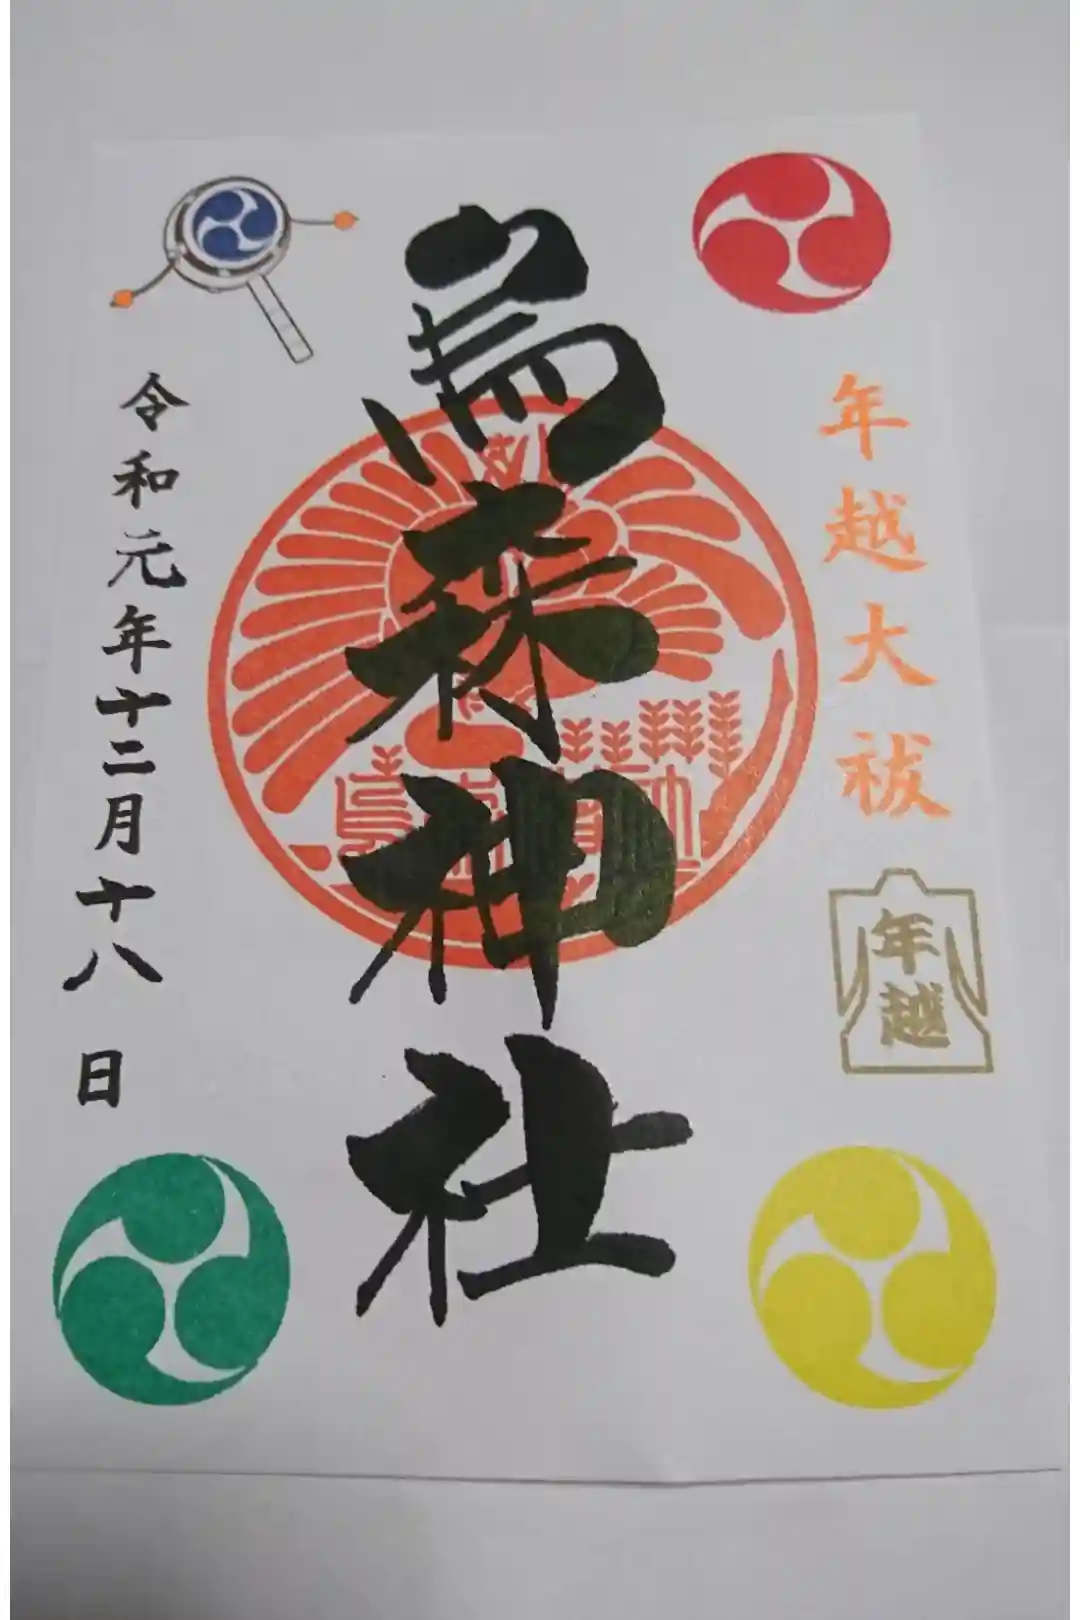 年越大祓
年越
烏森神社
令和元年十二月十八日